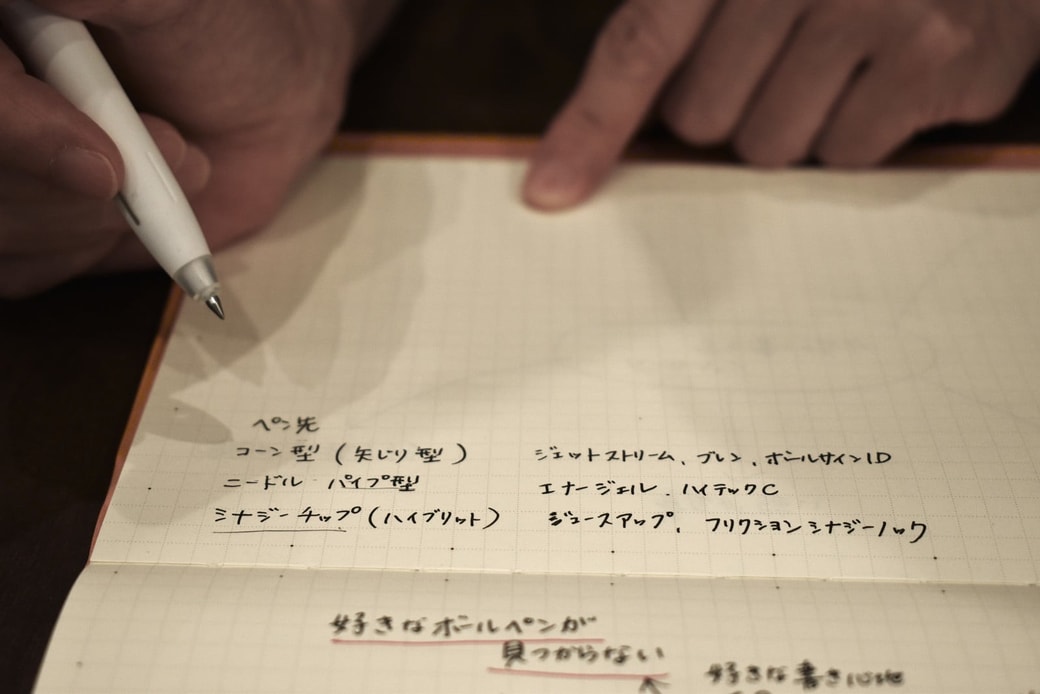 ペン先
コーン型(矢じり型) ジェットストリーム、ブレン、ボールサインiD
ニードル パイプ型 エナージェル、ハイテックC
シナジーチップ(ハイブリット) ジュースアップ、フリクションシナジーノック
好きなボールペンが
見つからない
好きな書き心地